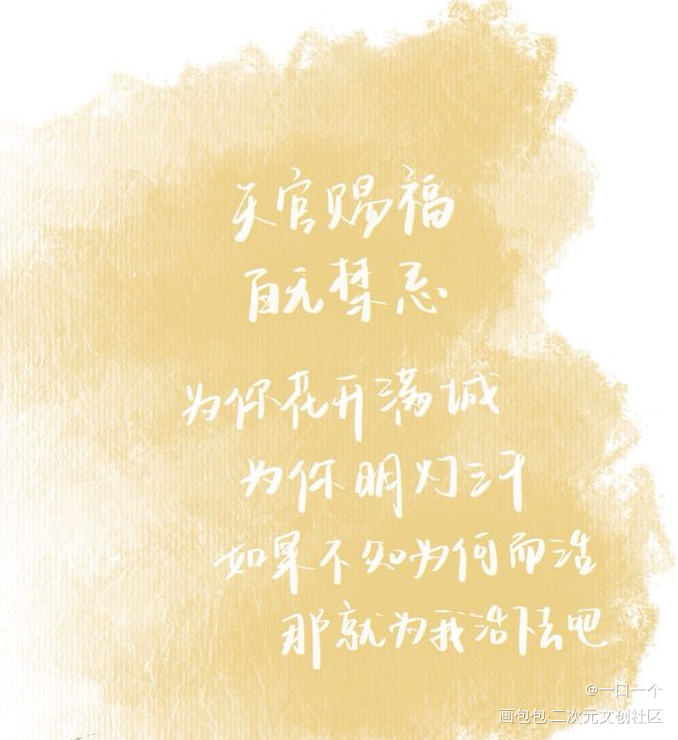 天官赐福
百无禁忌
为你花开满城
为你明灯三千
如果不知为何而活
那就为我活下去吧
@一口一个
画包包·二次元文创社区